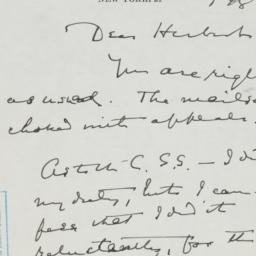 NEW YORK 21
Dear Herbert
You are righ
as usual. The mails
choked with appeals.
As to the C.S.S. – I di
my duty, but I can
fess that I did it
reluctantly, for th